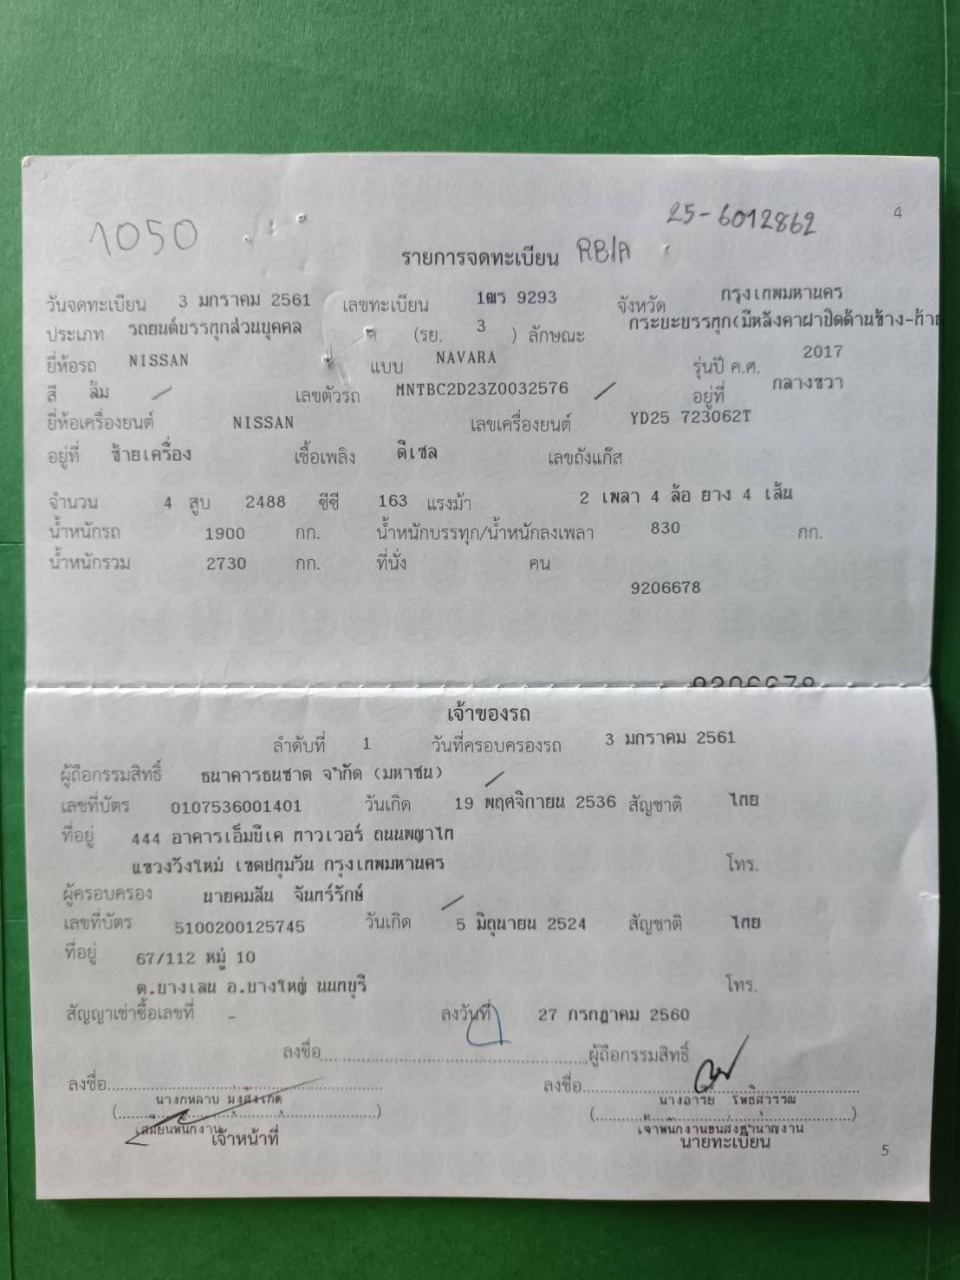 4
1050
25-6012862
รายการจดทะเบียน RB/A
วันจดทะเบียน 3 มกราคม 2561 เลขทะเบียน 1ฒร 9293 จังหวัด กรุงเทพมหานคร
ประเภท รถยนต์บรรทุกส่วนบุคคล (รย. 3 ) ลักษณะ กระบะบรรทุก(มีหลังคาฝาปิดด้านข้าง-ท้าย
ยี่ห้อรถ NISSAN แบบ NAVARA รุ่นปี ค.ศ. 2017
สี ส้ม เลขตัวรถ MNTBC2D23Z0032576 อยู่ที่ กลางขวา
ยี่ห้อเครื่องยนต์ NISSAN เลขเครื่องยนต์ YD25 723062T
อยู่ที่ ซ้ายเครื่อง เชื้อเพลิง ดีเซล เลขถังแก๊ส
จำนวน 4 สูบ 2488 ซีซี 163 แรงม้า 2 เพลา 4 ล้อ ยาง 4 เส้น
น้ำหนักรถ 1900 กก. น้ำหนักบรรทุก/น้ำหนักลงเพลา 830 กก.
น้ำหนักรวม 2730 กก. ที่นั่ง คน
9206678
เจ้าของรถ
ลำดับที่ 1 วันที่ครอบครองรถ 3 มกราคม 2561
ผู้ถือกรรมสิทธิ์ ธนาคารธนชาต จำกัด (มหาชน)
เลขที่บัตร 0107536001401 วันเกิด 19 พฤศจิกายน 2536 สัญชาติ ไทย
ที่อยู่ 444 อาคารเอ็มบีเค ทาวเวอร์ ถนนพญาไท
แขวงวังใหม่ เขตปทุมวัน กรุงเทพมหานคร โทร.
ผู้ครอบครอง นายคมสัน จันทร์รักษ์
เลขที่บัตร 5100200125745 วันเกิด 5 มิถุนายน 2524 สัญชาติ ไทย
ที่อยู่ 67/112 หมู่ 10
ต.บางเลน อ.บางใหญ่ นนทบุรี โทร.
สัญญาเช่าซื้อเลขที่ - ลงวันที่ 27 กรกฎาคม 2560
ลงชื่อ ผู้ถือกรรมสิทธิ์
ลงชื่อ ลงชื่อ
นางกุหลาบ นางอารีย์ โพธิสุวรรณ
( ) ( )
เสมียนพนักงาน เจ้าพนักงานขนส่งชำนาญงาน
เจ้าหน้าที่ นายทะเบียน
5